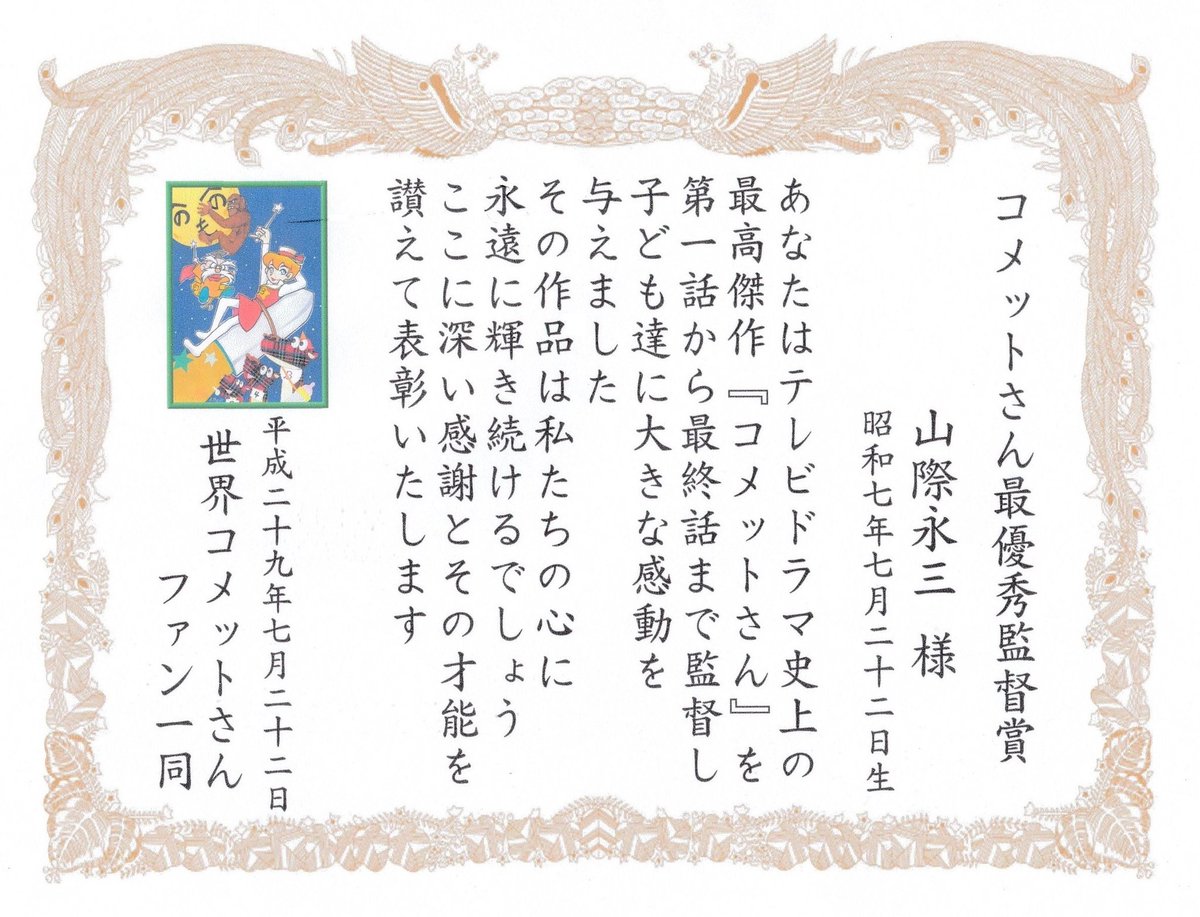 コメットさん最優秀監督賞
山際永三 様
昭和七年七月二十二日生
あなたはテレビドラマ史上の
最高傑作『コメットさん』を
第一話から最終話まで監督し
子ども達に大きな感動を
与えました
その作品は私たちの心に
永遠に輝き続けるでしょう
ここに深い感謝とその才能を
讃えて表彰いたします
平成二十九年七月二十二日
世界コメットさん
ファン一同